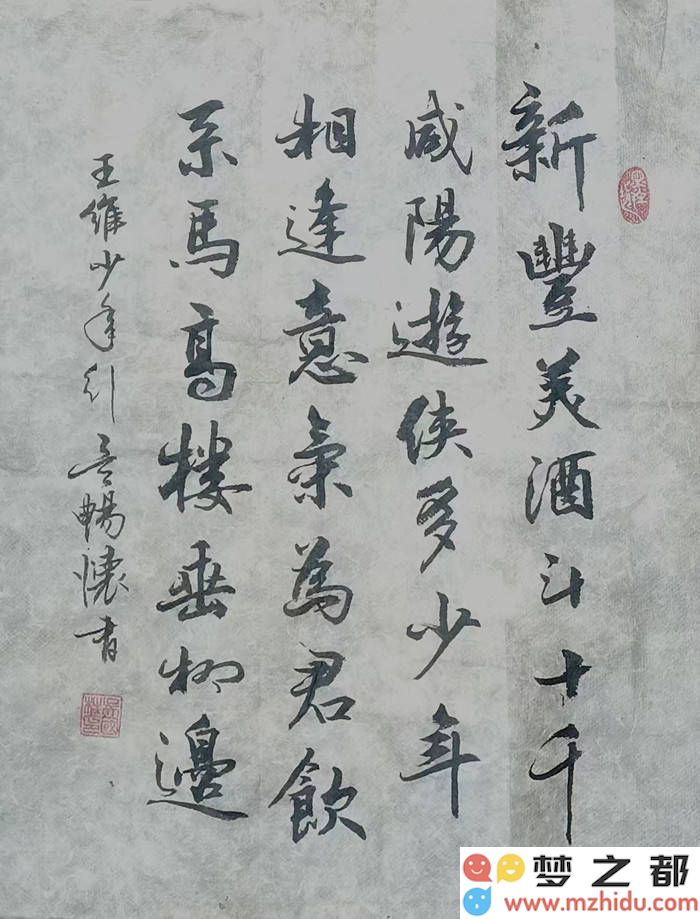 新豐美酒斗十千
咸陽遊俠多少年
相逢意氣為君飲
系馬高樓垂柳邊
王維少年行 暢懷書
梦之都
www.mzhidu.com